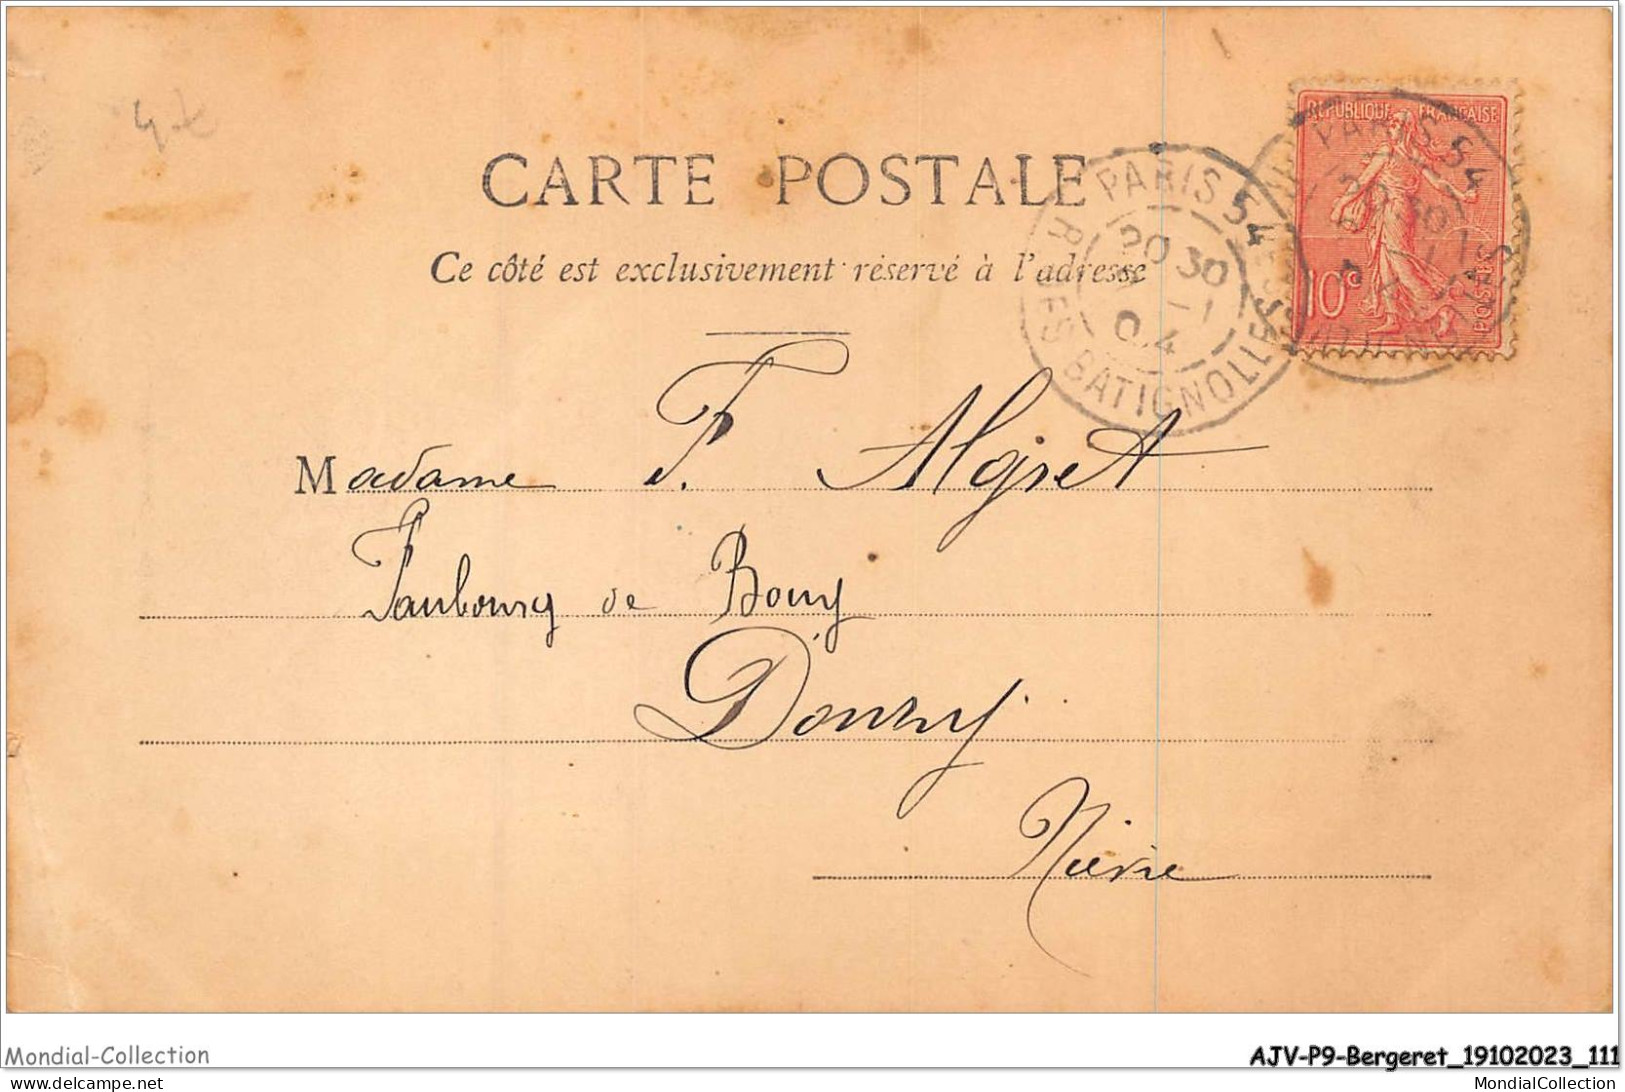 4 €
CARTE POSTALE
Ce côté est exclusivement réservé à l'adresse
RÉPUBLIQUE FRANÇAISE
10c
POSTES
PARIS 54
20 30
-1
04
R. DES BATIGNOLLES
PARIS 54
Madame F. Algret
Faubourg de Bouy
Donzy
Nièvre
Mondial-Collection
AJV-P9-Bergeret_19102023_111
delcampe.net
MondialCollection